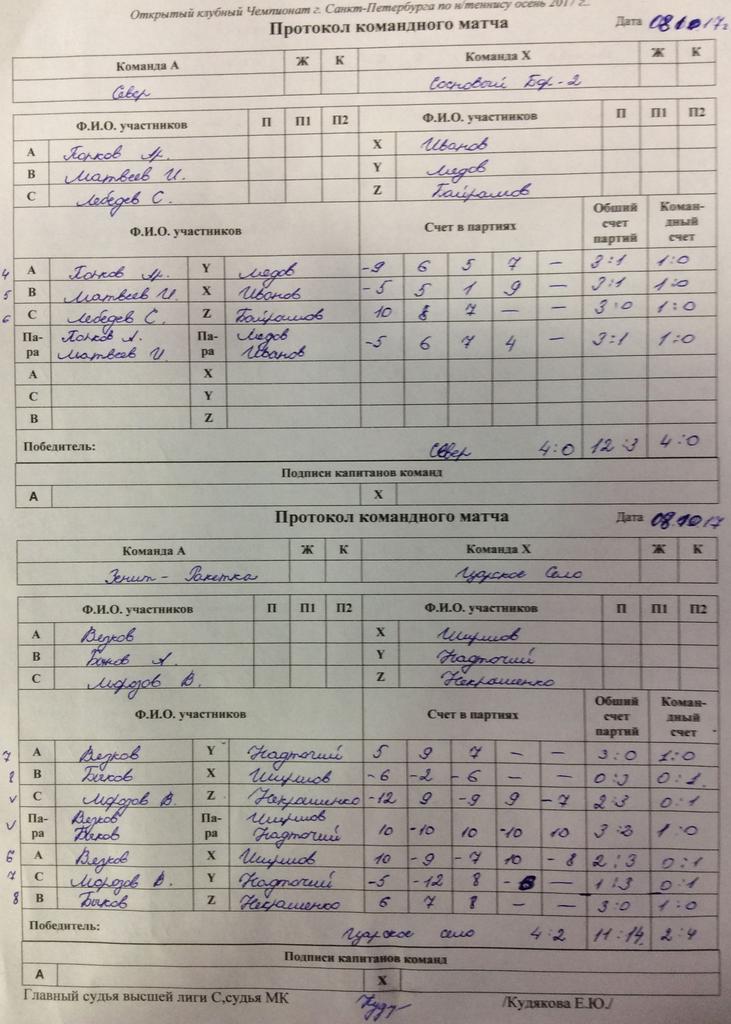 Открытый клубный Чемпионат г. Санкт-Петербурга по н/теннису осень 2017 г..
Протокол командного матча Дата 08.10.17г
Команда А Ж К Команда X Ж К
Север Сосновый Бор-2
Ф.И.О. участников П П1 П2 Ф.И.О. участников П П1 П2
А Попков Ар. X Иванов
В Матвеев И. Y Медов
С Лебедев С. Z Байрамов
Ф.И.О. участников Счет в партиях Общий счет партий Коман-дный счет
4 А Попков Ар. Y Медов -9 6 5 7 — 3:1 1:0
5 В Матвеев И. X Иванов -5 5 1 9 — 3:1 1:0
6 С Лебедев С. Z Байрамов 10 8 7 — — 3:0 1:0
Па- Попков А. Па- Медов
ра Матвеев И. ра Иванов -5 6 7 4 — 3:1 1:0
А X
С Y
В Z
Победитель: Север 4:0 12:3 4:0
Подписи капитанов команд
А X
Протокол командного матча Дата 08.10.17
Команда А Ж К Команда X Ж К
Зенит-Ракетка Царское Село
Ф.И.О. участников П П1 П2 Ф.И.О. участников П П1 П2
А Вязков X Ширшов
В Быков А. Y Надточий
С Морозов В. Z Некрашенко
Ф.И.О. участников Счет в партиях Общий счет партий Коман-дный счет
7 А Вязков Y Надточий 5 9 7 — — 3:0 1:0
8 В Быков X Ширшов -6 -2 -6 — — 0:3 0:1
v С Морозов В. Z Некрашенко -12 9 -9 9 -7 2:3 0:1
v Па- Вязков Па- Ширшов
ра Быков ра Надточий 10 -10 10 -10 10 3:2 1:0
6 А Вязков X Ширшов 10 -9 -7 10 -8 2:3 0:1
7 С Морозов В. Y Надточий -5 -12 8 -6 — 1:3 0:1
8 В Быков Z Некрашенко 6 7 8 — — 3:0 1:0
Победитель: Царское село 4:2 11:14 2:4
Подписи капитанов команд
А X
Главный судья высшей лиги С,судья МК /Кудякова Е.Ю./